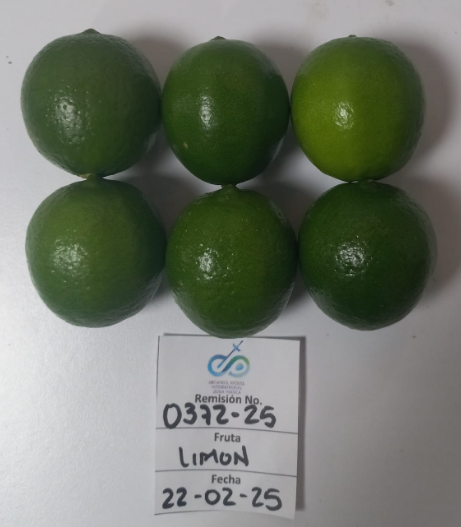 Remisión No.
0372-25
Fruta
LIMON
Fecha
22-02-25